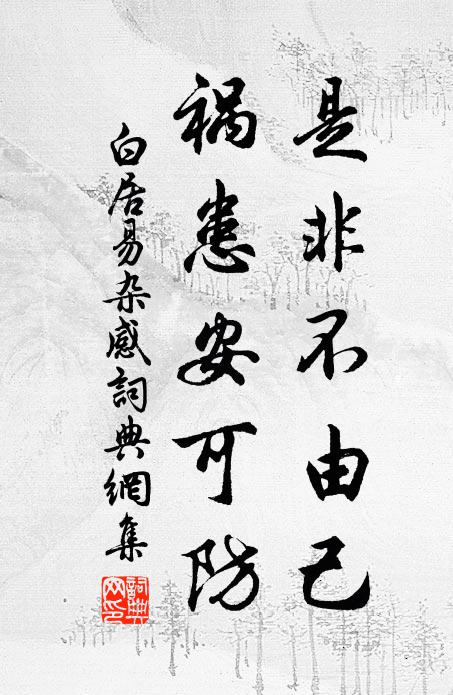 是非不由己
祸患安可防
白居易杂感詞典網集
詞典